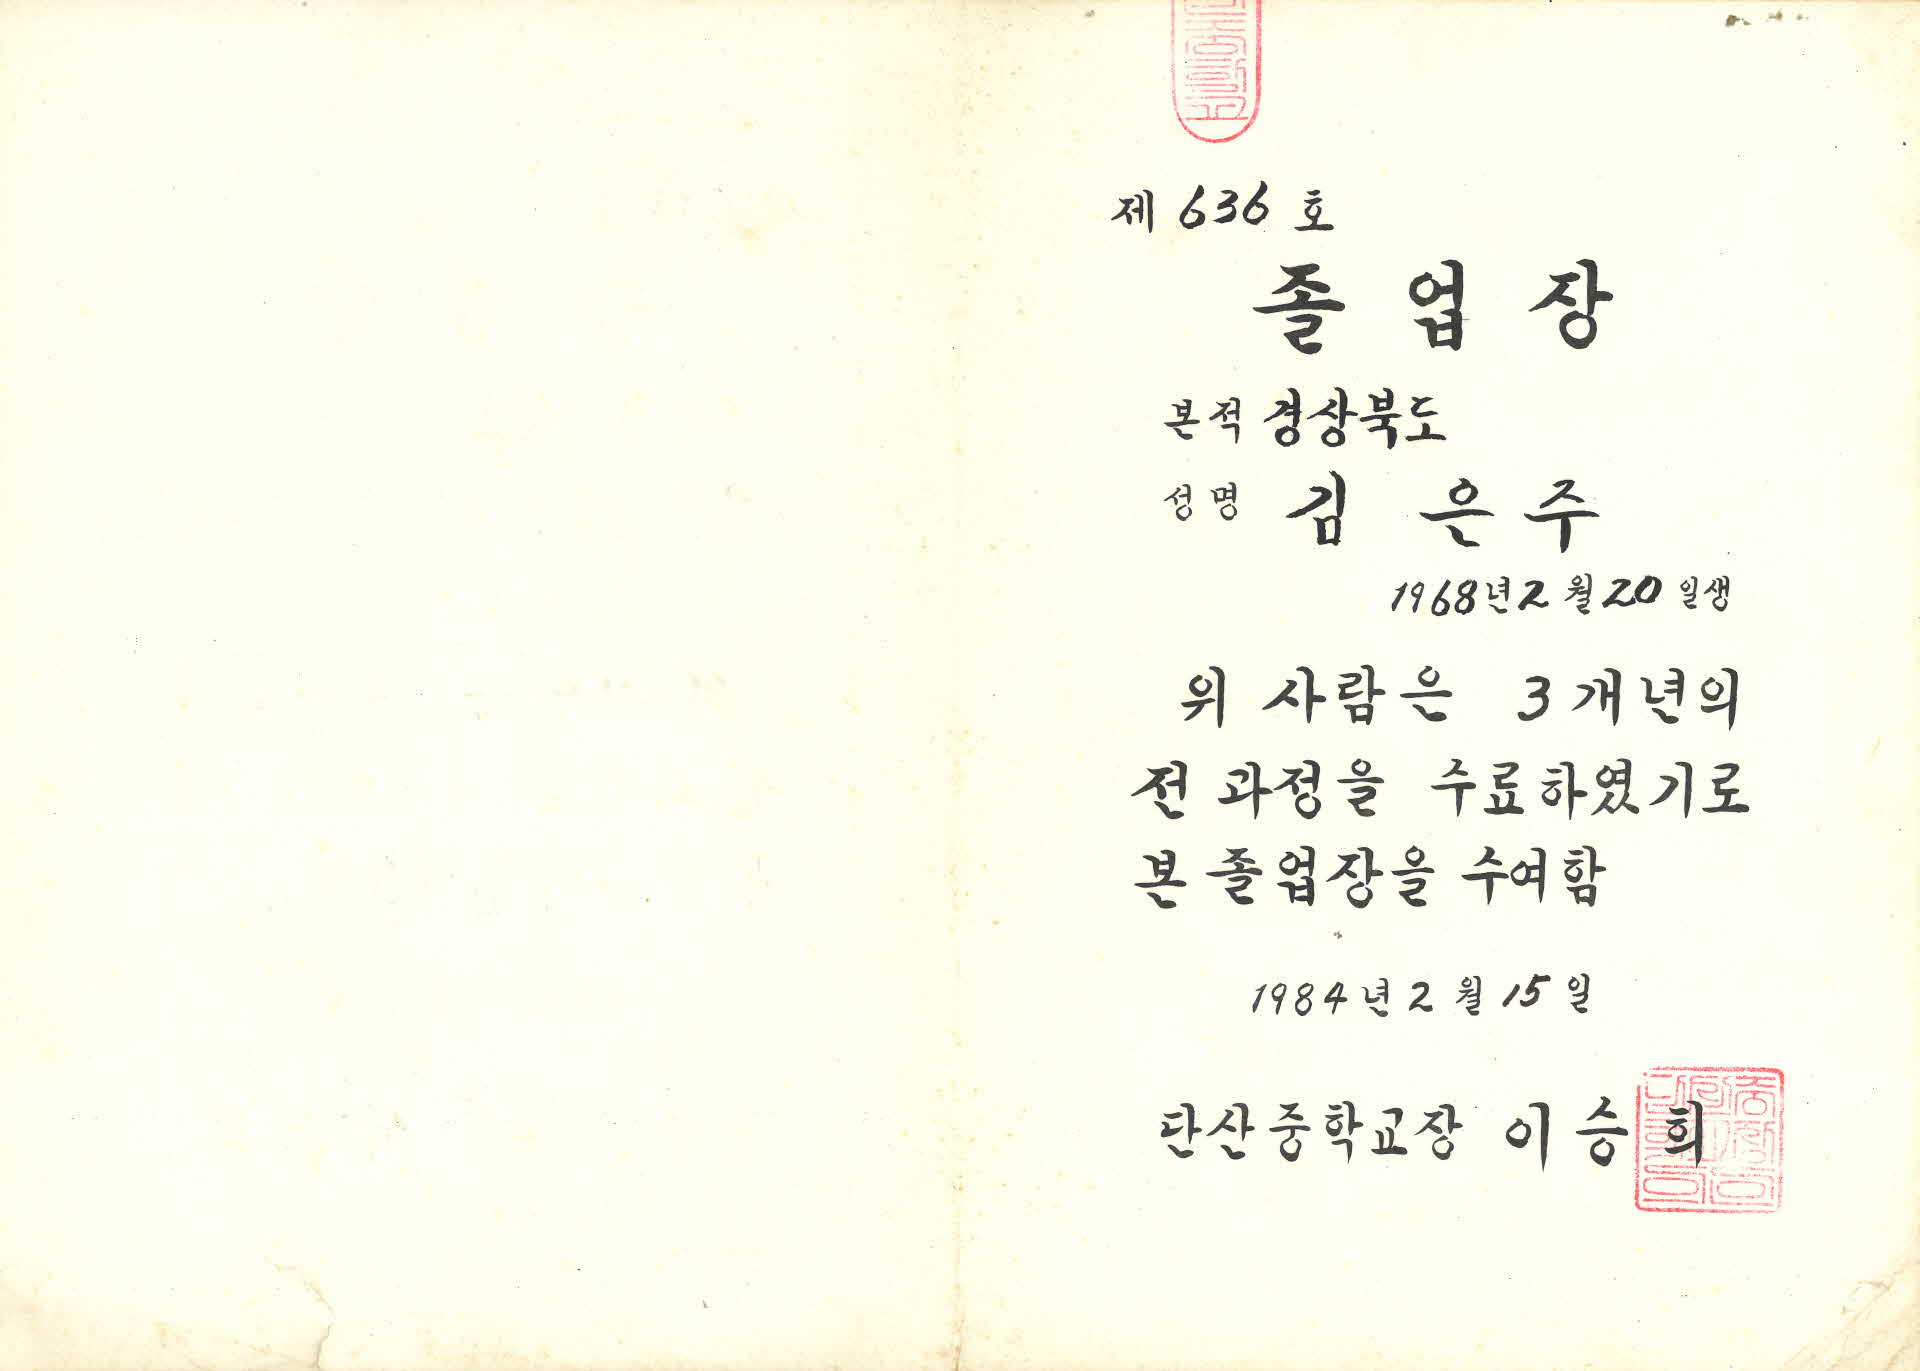 제 636 호
졸업장
본적 경상북도
성명 김은주
1968년 2월 20일생
위 사람은 3개년의
전 과정을 수료하였기로
본 졸업장을 수여함
1984년 2월 15일
단산중학교장 이승희